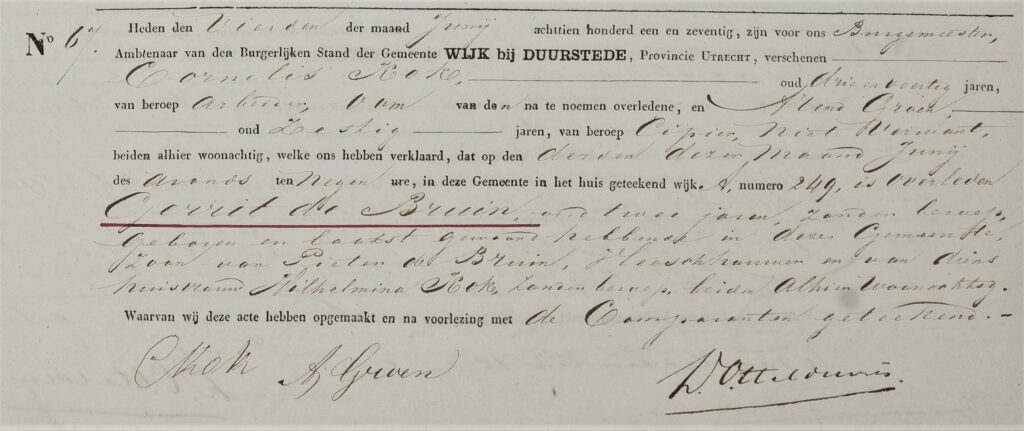 No 67. Heden den Vierden der maand Junij achttien honderd een en zeventig, zijn voor ons Burgemeester,
Ambtenaar van den Burgerlijken Stand der Gemeente WIJK bij DUURSTEDE, Provincie UTRECHT, verschenen
Cornelis Kok, oud drie en veertig jaren,
van beroep Arbeider, Oom van den na te noemen overledene, en Arend Groen,
oud Zestig jaren, van beroep Cipier, Niet Verwant,
beiden alhier woonachtig, welke ons hebben verklaard, dat op den derden dezer Maand Junij
des avonds ten Negen ure, in deze Gemeente in het huis geteekend wijk A, numero 249, is Overleden
Gerrit de Bruin, oud twee jaren, Zonder beroep,
geboren en laatst gewoond hebbende in deze Gemeente,
Zoon van Pieter de Bruin, Vleeschhouwer en van diens
huisvrouw Wilhelmina Kok, Zonder beroep, beiden Alhier Woonachtig.
Waarvan wij deze acte hebben opgemaakt en na voorlezing met de Comparanten geteekend.-
CKok A Groen